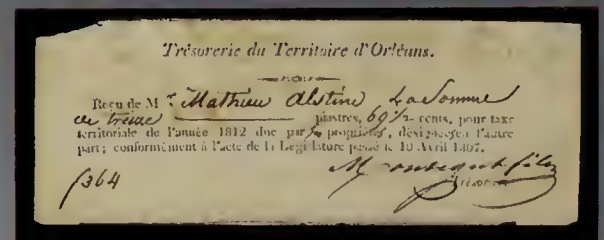 Trésorerie du Territoire d'Orléans.
Reçu de M.r Mathieu Alstine La Somme
de treize piastres, 69½ cents, pour taxe
territoriale de l'année 1812 due par propriétés, désignées en l'autre
part; conformément à l'acte de la Législature passé le 10 Avril 1807.
Montegut fils
Trésorier
364